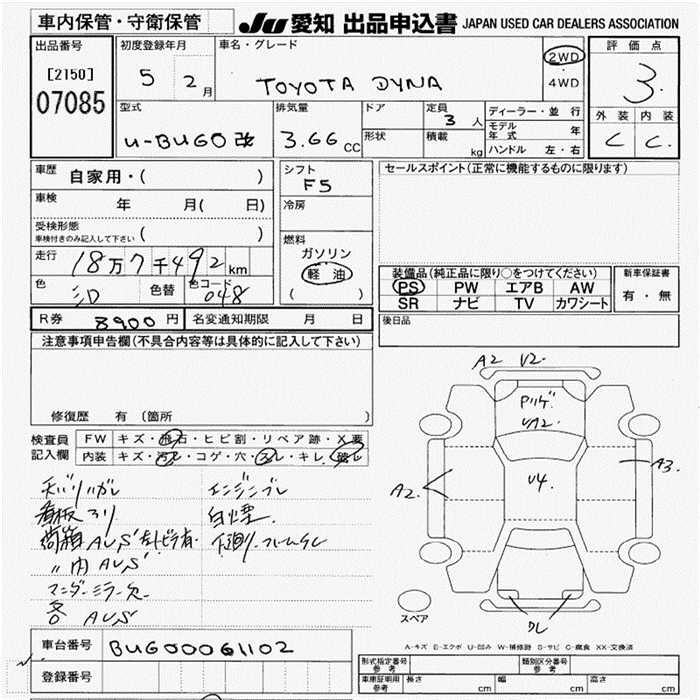 車内保管・守衛保管
JU 愛知 出品申込書 JAPAN USED CAR DEALERS ASSOCIATION
出品番号
[2150]
07085
初度登録年月
5 2月
車名・グレード
TOYOTA DYNA
2WD
4WD
評価点
3.
外装 内装
C C.
型式
U-BUG0改
排気量
3.66 CC
ドア
形状
定員
3人
積載 kg
ディーラー・並行
モデル年式 年
ハンドル 左・右
車歴
自家用・( )
車検
年 月( 日)
受検形態
車検付きのみ記入して下さい ( )
走行
18万7千492km
色
色替
色コード
048
シフト
F5
冷房
燃料
ガソリン
軽油
( )
セールスポイント(正常に機能するものに限ります)
装備品(純正品に限り○をつけてください)
PS PW エアB AW
SR ナビ TV カワシート
新車保証書
有・無
R券 8900円
名変通知期限 月 日
後日品
注意事項申告欄(不具合内容等は具体的に記入して下さい)
修復歴 有(箇所
検査員記入欄
FW キズ・飛石・ヒビ割・リペア跡・X要
内装 キズ・汚レ・コゲ・穴・スレ・キレ・破レ
看板コリ
荷箱AUS
〃内AUS
各 AUS
エンジンブレ
白煙.
A2 V2.
VA2.
V4.
A2.
A3.
クレ
スペア
A-キズ E-エクボ U-凹み W-補修跡 S-サビ C-腐食 XX-交換済
車台番号 BUG00061102
登録番号
形式指定番号
参考
類別区分番号
参考
車庫証明用
参考
長さ cm
幅 cm
高さ cm